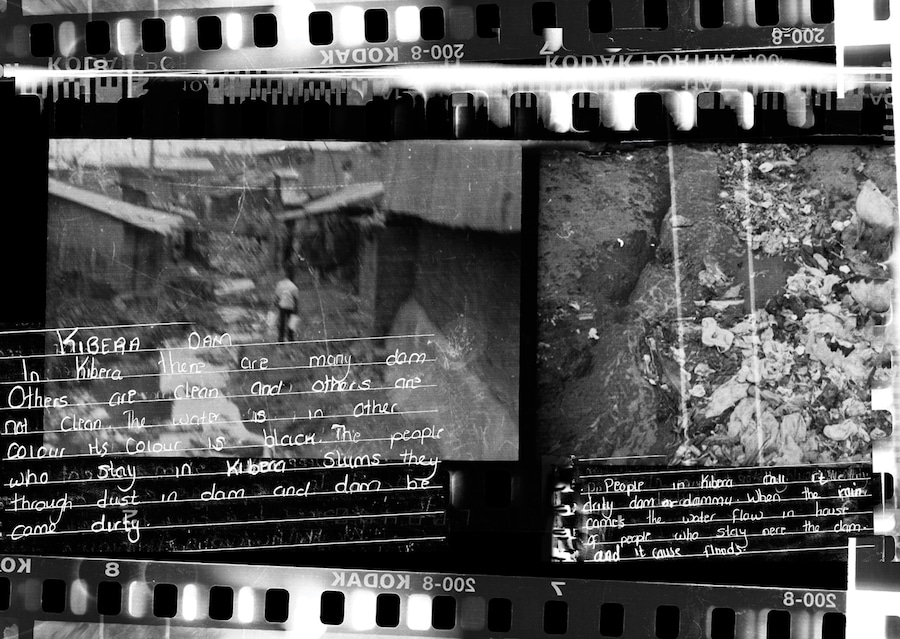 200-8 KODAK
200-8 KODAK
7
200-8
KODAK PORTRA 400
KIBERA DAM
In Kibera there are many dam
Others are clean and others are
not clean. The water is in other
colour its colour is black. The people
who stay in Kibera slums they
through dust in dam and dam be
came dirty.
People in Kibera call it
dirty dam or dammy. When the rain
comes the water flow in houst
of people who stay nere the dam.
and it cause floods
KO
8
200-8 KODAK
7
200-8